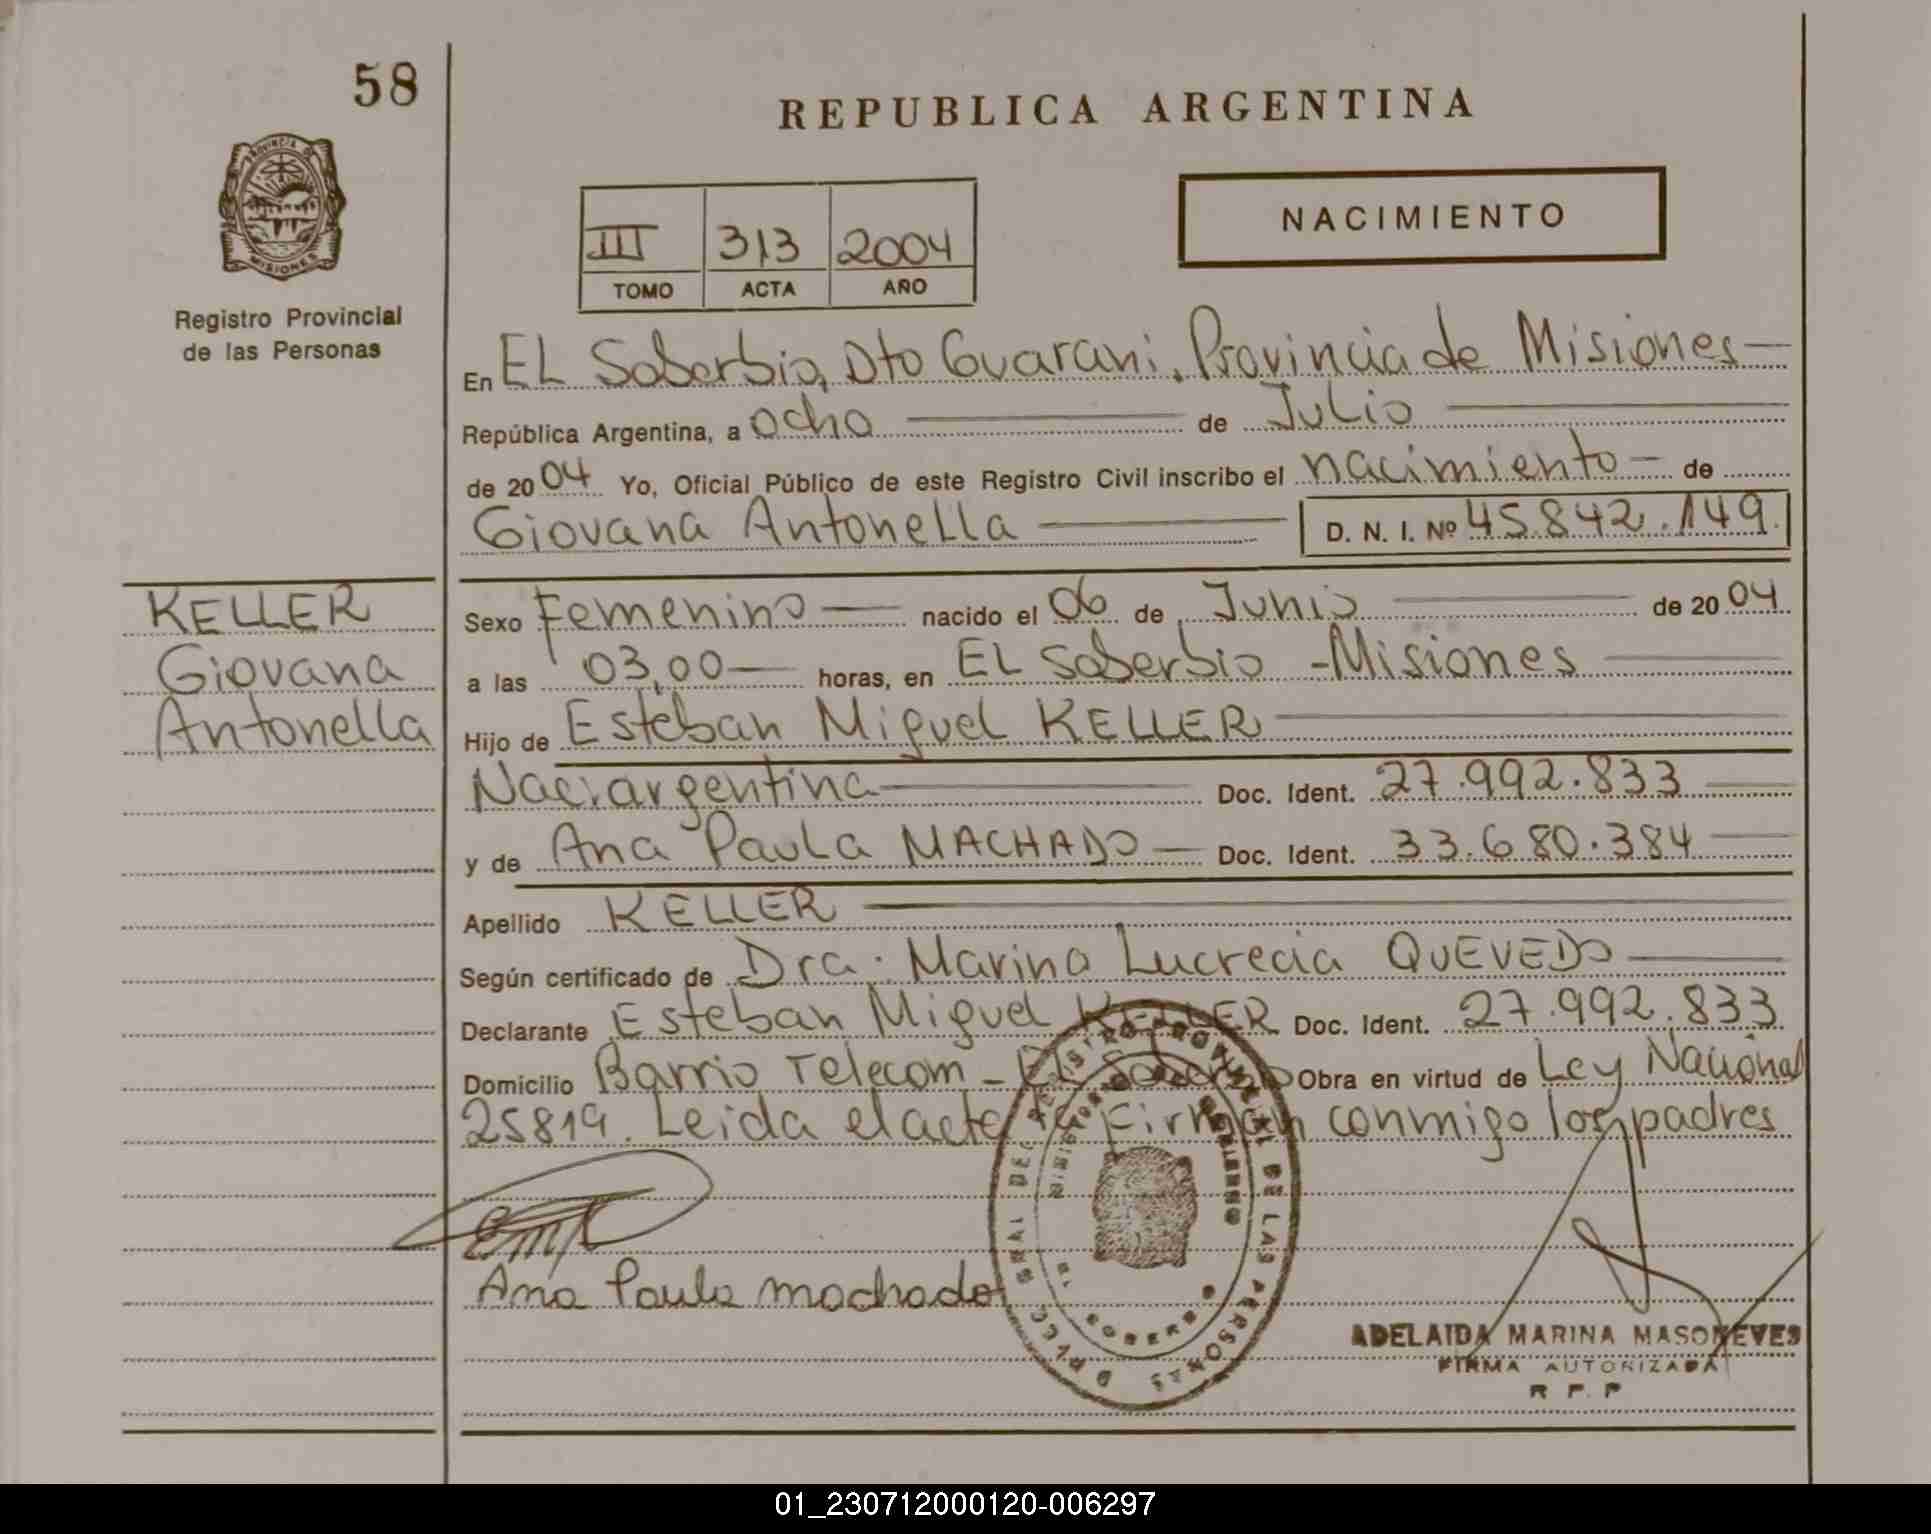 58
REPUBLICA ARGENTINA
PROVINCIA DE
MISIONES
Registro Provincial
de las Personas
III 313 2004
TOMO ACTA AÑO
NACIMIENTO
En EL Soberbio, Dto Guarani, Provincia de Misiones
República Argentina, a ocho de Julio
de 2004 Yo, Oficial Público de este Registro Civil inscribo el nacimiento de
Giovana Antonella D. N. I. Nº 45.842.149.
KELLER
Giovana
Antonella
Sexo Femenino nacido el 06 de Junio de 2004
a las 03,00 horas, en EL Soberbio - Misiones
Hijo de Esteban Miguel KELLER
Nac. argentina Doc. Ident. 27.992.833
y de Ana Paula MACHADO Doc. Ident. 33.680.384
Apellido KELLER
Según certificado de Dra. Marina Lucrecia QUEVEDO
Declarante Esteban Miguel KELLER Doc. Ident. 27.992.833
Domicilio Barrio Telecom - El Soberbio Obra en virtud de Ley Nacional
25819. Leida el acta la Firman conmigo los padres
Ana Paula machado
DIREC GRAL DEL REGISTRO PROVINCIAL DE LAS PERSONAS
MINISTERIO GOBIERNO
EL SOBERBIO
ADELAIDA MARINA MASONEVES
FIRMA AUTORIZADA
R P. P
01_230712000120-006297